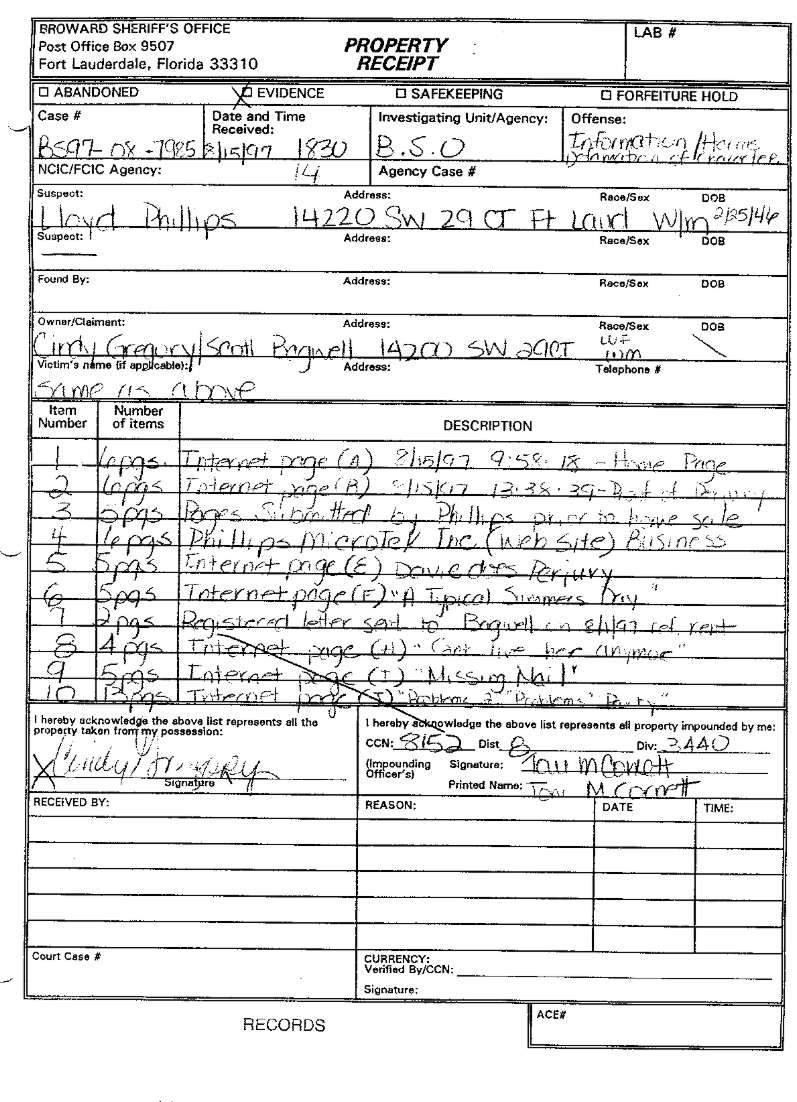 BROWARD SHERIFF'S OFFICE
Post Office Box 9507
Fort Lauderdale, Florida 33310
PROPERTY
RECEIPT
LAB #
ABANDONED EVIDENCE SAFEKEEPING FORFEITURE HOLD
Case # Date and Time Received: Investigating Unit/Agency: Offense:
BS97-08-7985 8/15/97 1830 B.S.O Information/Harris
Defamation of Character
NCIC/FCIC Agency: 14 Agency Case #
Suspect: Address: Race/Sex DOB
Lloyd Phillips 14220 SW 29 CT Ft Laud W/m 2/25/46
Suspect: Address: Race/Sex DOB
Found By: Address: Race/Sex DOB
Owner/Claiment: Address: Race/Sex DOB
Cindy Gregory/Scott Bagwell 14200 SW 29CT W/F
W/M
Victim's name (if applicable): Address: Telephone #
same as above
Item Number Number of items DESCRIPTION
1 6pgs. Internet page (A) 8/15/97 9:58:18 - Home Page
2 6pgs Internet page (B) 8/15/97 13:38:39 - of
3 5pgs Pages Submitted by Phillips prior to home sale
4 6pgs Phillips MicroTek Inc. (Web Site) Business
5 5pgs Internet page (E) Davie Perjury
6 5pgs Internet page (F) "A Typical Summers Day"
7 2pgs Registered letter sent to Bagwell on 8/1/97 ref rent
8 4pgs Internet page (H) "Cant live her anymor"
9 5pgs Internet page (I) "Missing Mail"
10 13pgs Internet page (J) "Problems 2" "Problems' Party"
I hereby acknowledge the above list represents all the
property taken from my possession:
X Cindy Gregory
Signature
I hereby acknowledge the above list represents all property impounded by me:
CCN: 8152 Dist 8 Div: 3440
(Impounding Officer's) Signature: M Cornett
Printed Name: M. Cornett
RECEIVED BY: REASON: DATE TIME:
Court Case #
CURRENCY:
Verified By/CCN:
Signature:
RECORDS
ACE#